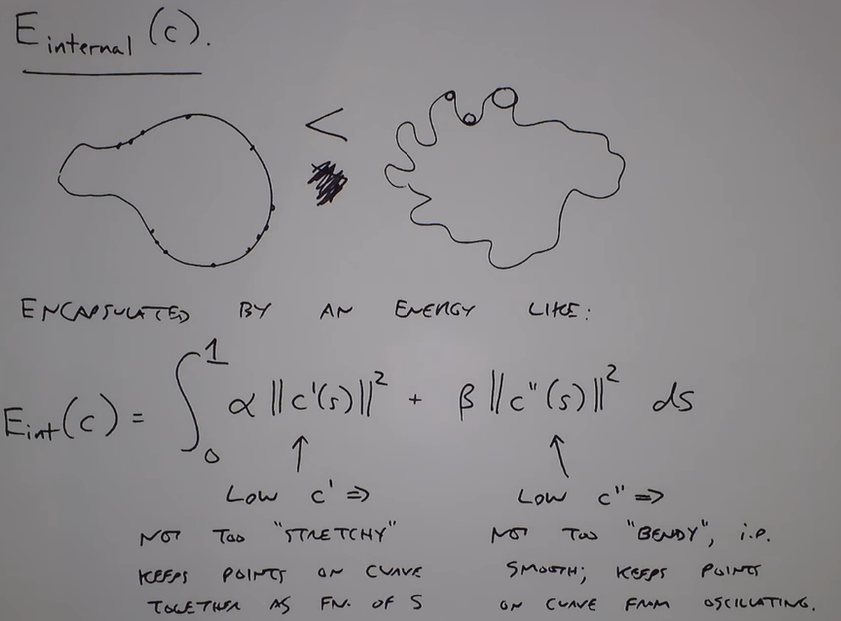 E internal (c).
<
ENCAPSULATED BY AN ENERGY LIKE:
E_int(c) = ∫₀¹ α ||c'(s)||² + β ||c''(s)||² ds
LOW c' ⇒ LOW c'' ⇒
NOT TOO "STRETCHY" NOT TOO "BENDY", i.e.
KEEPS POINTS ON CURVE SMOOTH; KEEPS POINTS
TOGETHER AS FN. OF S ON CURVE FROM OSCILLATING.